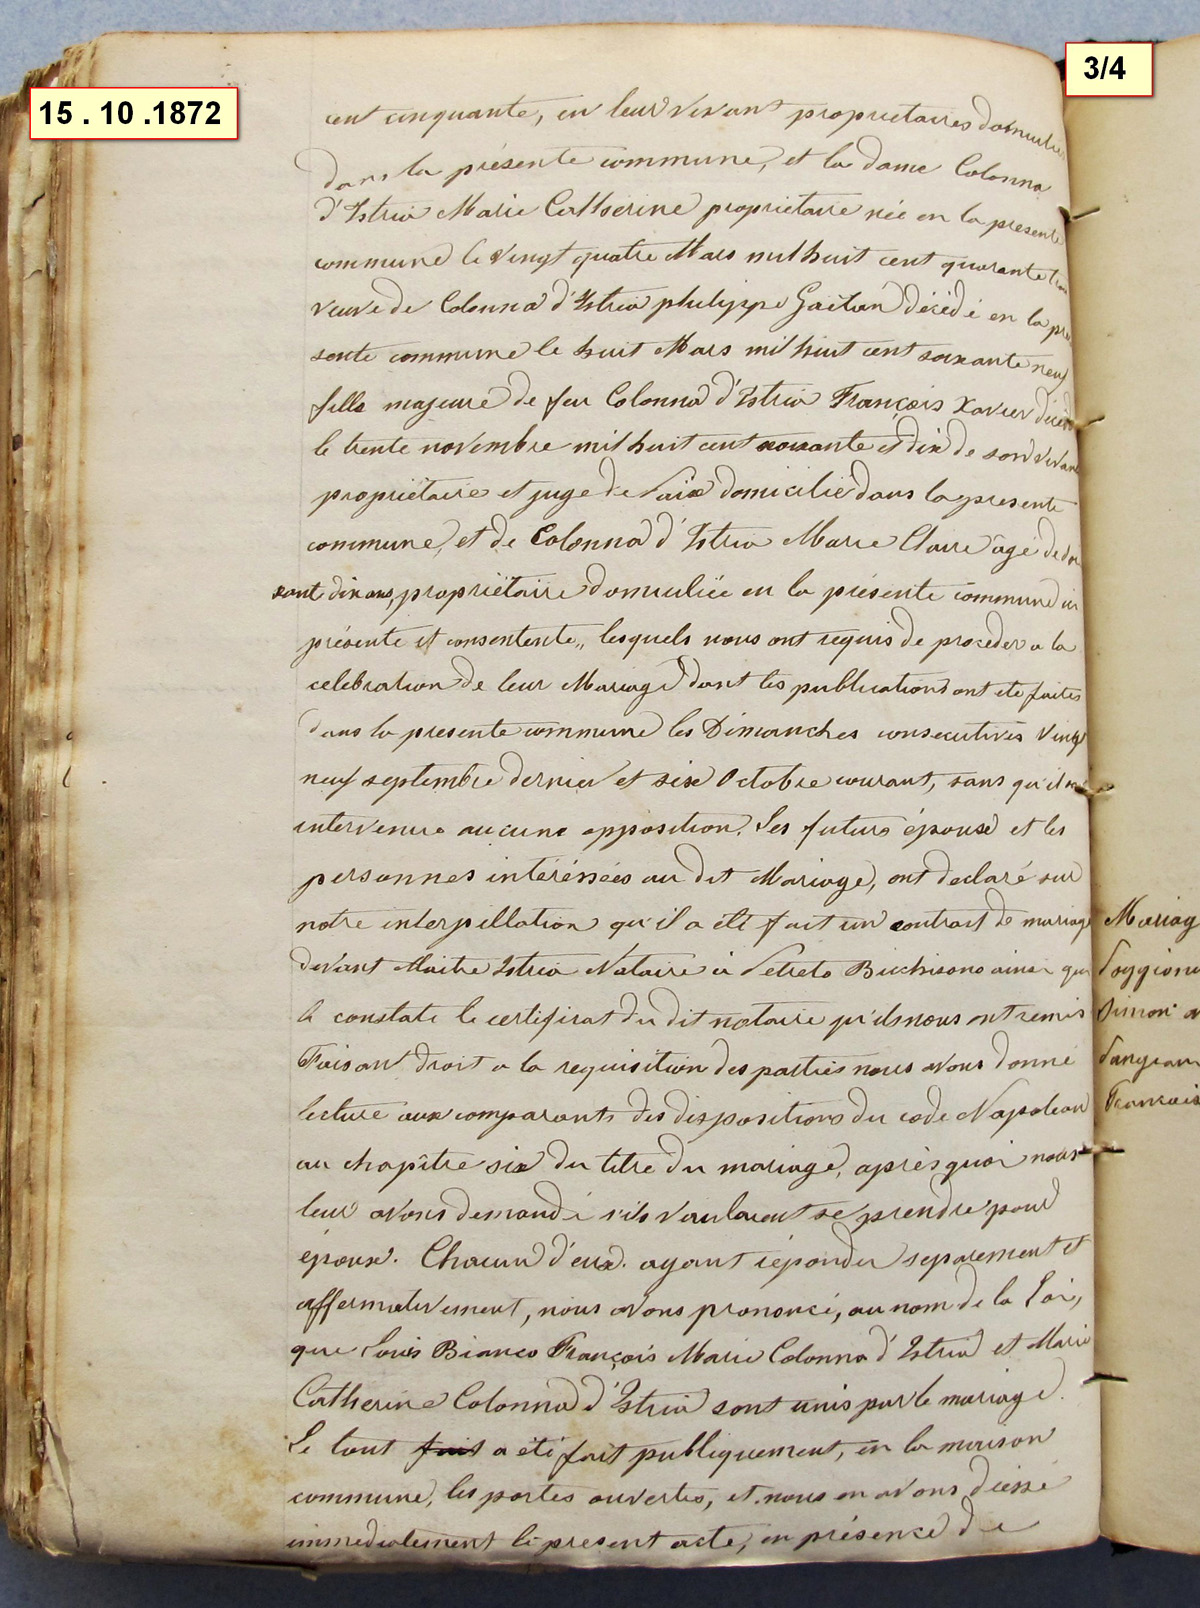 15 . 10 .1872
3/4
cent cinquante, en leur vivant propriétaires domicilies
dans la présente commune, et la dame Colonna
d'Istria Marie Catherine propriétaire née en la presente
commune le vingt quatre Mars mil huit cent quarante trois
veuve de Colonna d'Istria philippe Gaëtan décédé en la pre
sente commune le huit Mars mil huit cent soixante neuf
fille majeure de feu Colonna d'Istria François Xavier décédé
le trente novembre mil huit cent soixante et dix de son vivant
propriétaire et juge de Paix domicilié dans la presente
commune, et de Colonna d'Istria Marie Claire âgé de soi
xant dix ans, propriétaire domiciliée en la présente commune ici
présente et consentente, lesquels nous ont requis de proceder a la
celebration de leur Mariage dont les publications ont ete faites
dans la presente commune les Dimanches consecutives vingt
neuf septembre dernier et six Octobre courant, sans qu'il soit
intervenue aucune opposition. Les futurs épouse et les
personnes intéréssées au dit Mariage, ont declaré sur
notre interpellation qu'il a été fait un contrat de mariage
devant Maitre Istria Notaire à Petreto Bicchisono ainsi que
le constate le certificat du dit notaire qu'ils nous ont remis
Faisant droit a la requisition des parties nous avons donné
lecture aux comparants des dispositions du code Napoleon
au chapître six du titre du mariage, après quoi nous
leur avons demandé s'ils vaulaient se prendre pour
époux. Chacun d'eux ayant répondu separement et
affermativement, nous avons prononcé, au nom de la Loi,
que Louis Bianco François Marie Colonna d'Istria et Marie
Catherine Colonna d'Istria sont unis par le mariage.
Le tout fait a été fait publiquement, en la maison
commune, les portes ouvertes, et nous en avons dressé
immediatement le present acte, en présence de
Mariag
Poggiona
Simon
François